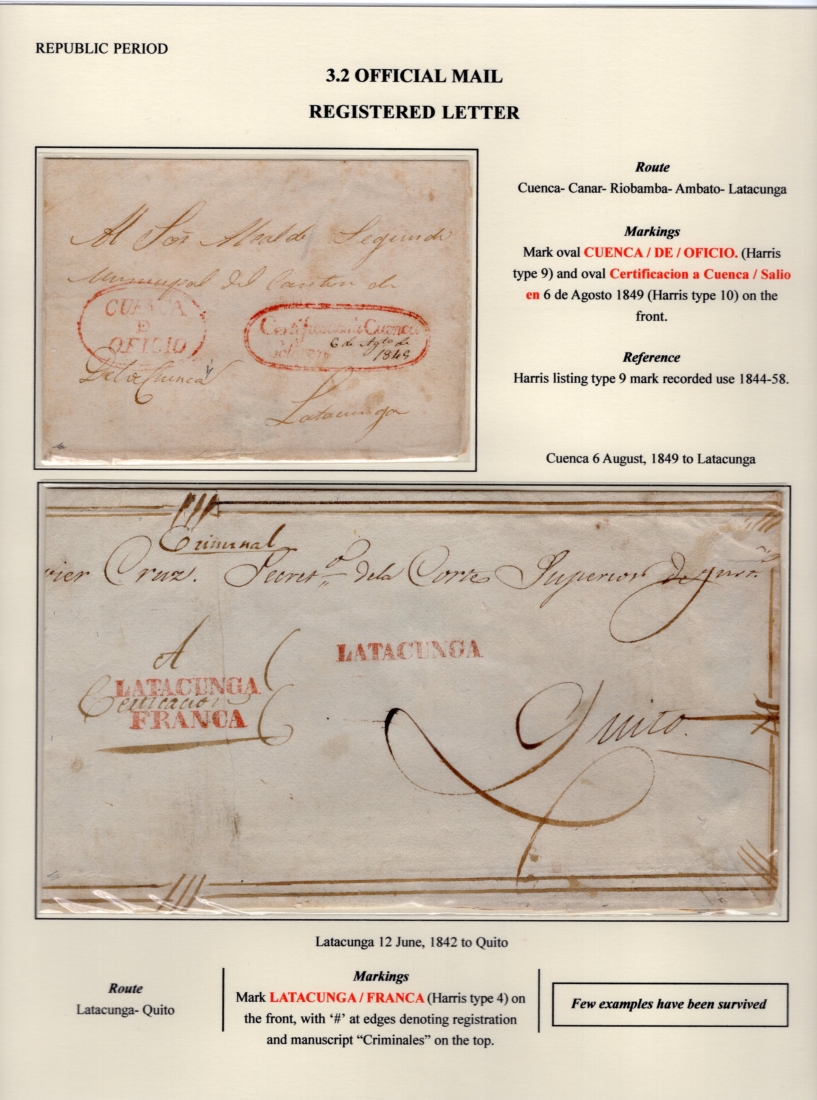 REPUBLIC PERIOD
3.2 OFFICIAL MAIL
REGISTERED LETTER
Al Sor Alcalde Segundo
Municipal del Canton de
CUENCA
D
OFICIO
Certificacion a Cuenca
Salio en 6 de Agto de
1849
De Cuenca
Latacunga
Route
Cuenca- Canar- Riobamba- Ambato- Latacunga
Markings
Mark oval CUENCA / DE / OFICIO. (Harris
type 9) and oval Certificacion a Cuenca / Salio
en 6 de Agosto 1849 (Harris type 10) on the
front.
Reference
Harris listing type 9 mark recorded use 1844-58.
Cuenca 6 August, 1849 to Latacunga
Criminal
vier Cruz. Secreto dela Corte Superior de
A
LATACUNGA
LATACUNGA
Certicacion
FRANCA
Quito.
Latacunga 12 June, 1842 to Quito
Route
Latacunga- Quito
Markings
Mark LATACUNGA / FRANCA (Harris type 4) on
the front, with ‘#’ at edges denoting registration
and manuscript “Criminales” on the top.
Few examples have been survived